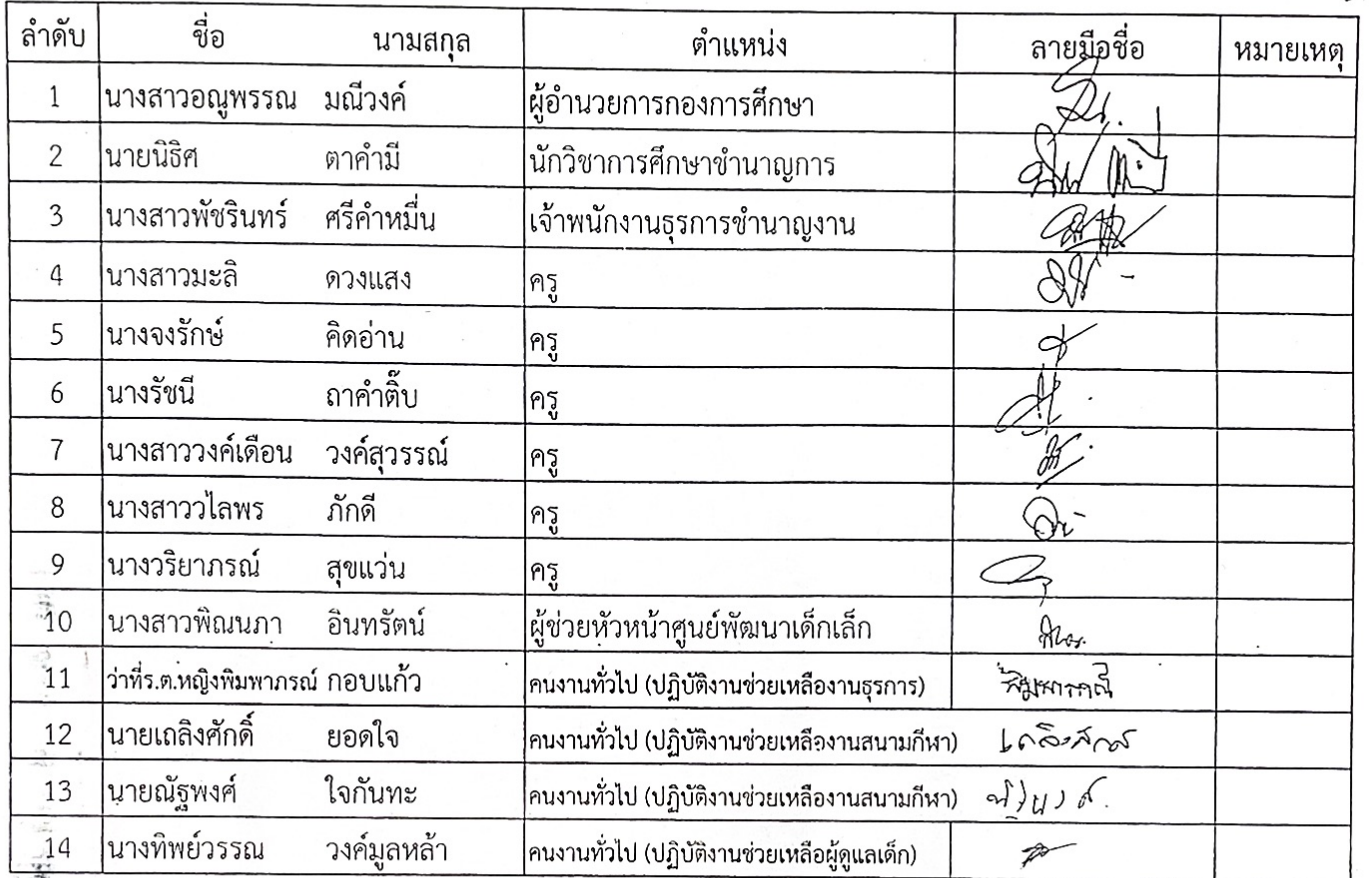 ลำดับ ชื่อ นามสกุล ตำแหน่ง ลายมือชื่อ หมายเหตุ
1 นางสาวอณูพรรณ มณีวงค์ ผู้อำนวยการกองการศึกษา
2 นายนิธิศ ตาคำมี นักวิชาการศึกษาชำนาญการ
3 นางสาวพัชรินทร์ ศรีคำหมื่น เจ้าพนักงานธุรการชำนาญงาน
4 นางสาวมะลิ ดวงแสง ครู
5 นางจงรักษ์ คิดอ่าน ครู
6 นางรัชนี ถาคำติ๊บ ครู
7 นางสาววงค์เดือน วงค์สุวรรณ์ ครู
8 นางสาววไลพร ภักดี ครู
9 นางวริยาภรณ์ สุขแว่น ครู
10 นางสาวพิณนภา อินทรัตน์ ผู้ช่วยหัวหน้าศูนย์พัฒนาเด็กเล็ก
11 ว่าที่ร.ต.หญิงพิมพาภรณ์ กอบแก้ว คนงานทั่วไป (ปฏิบัติงานช่วยเหลืองานธุรการ) พิมพาภรณ์
12 นายเถลิงศักดิ์ ยอดใจ คนงานทั่วไป (ปฏิบัติงานช่วยเหลืองานสนามกีฬา)
13 นายณัฐพงศ์ ใจกันทะ คนงานทั่วไป (ปฏิบัติงานช่วยเหลืองานสนามกีฬา)
14 นางทิพย์วรรณ วงค์มูลหล้า คนงานทั่วไป (ปฏิบัติงานช่วยเหลือผู้ดูแลเด็ก)